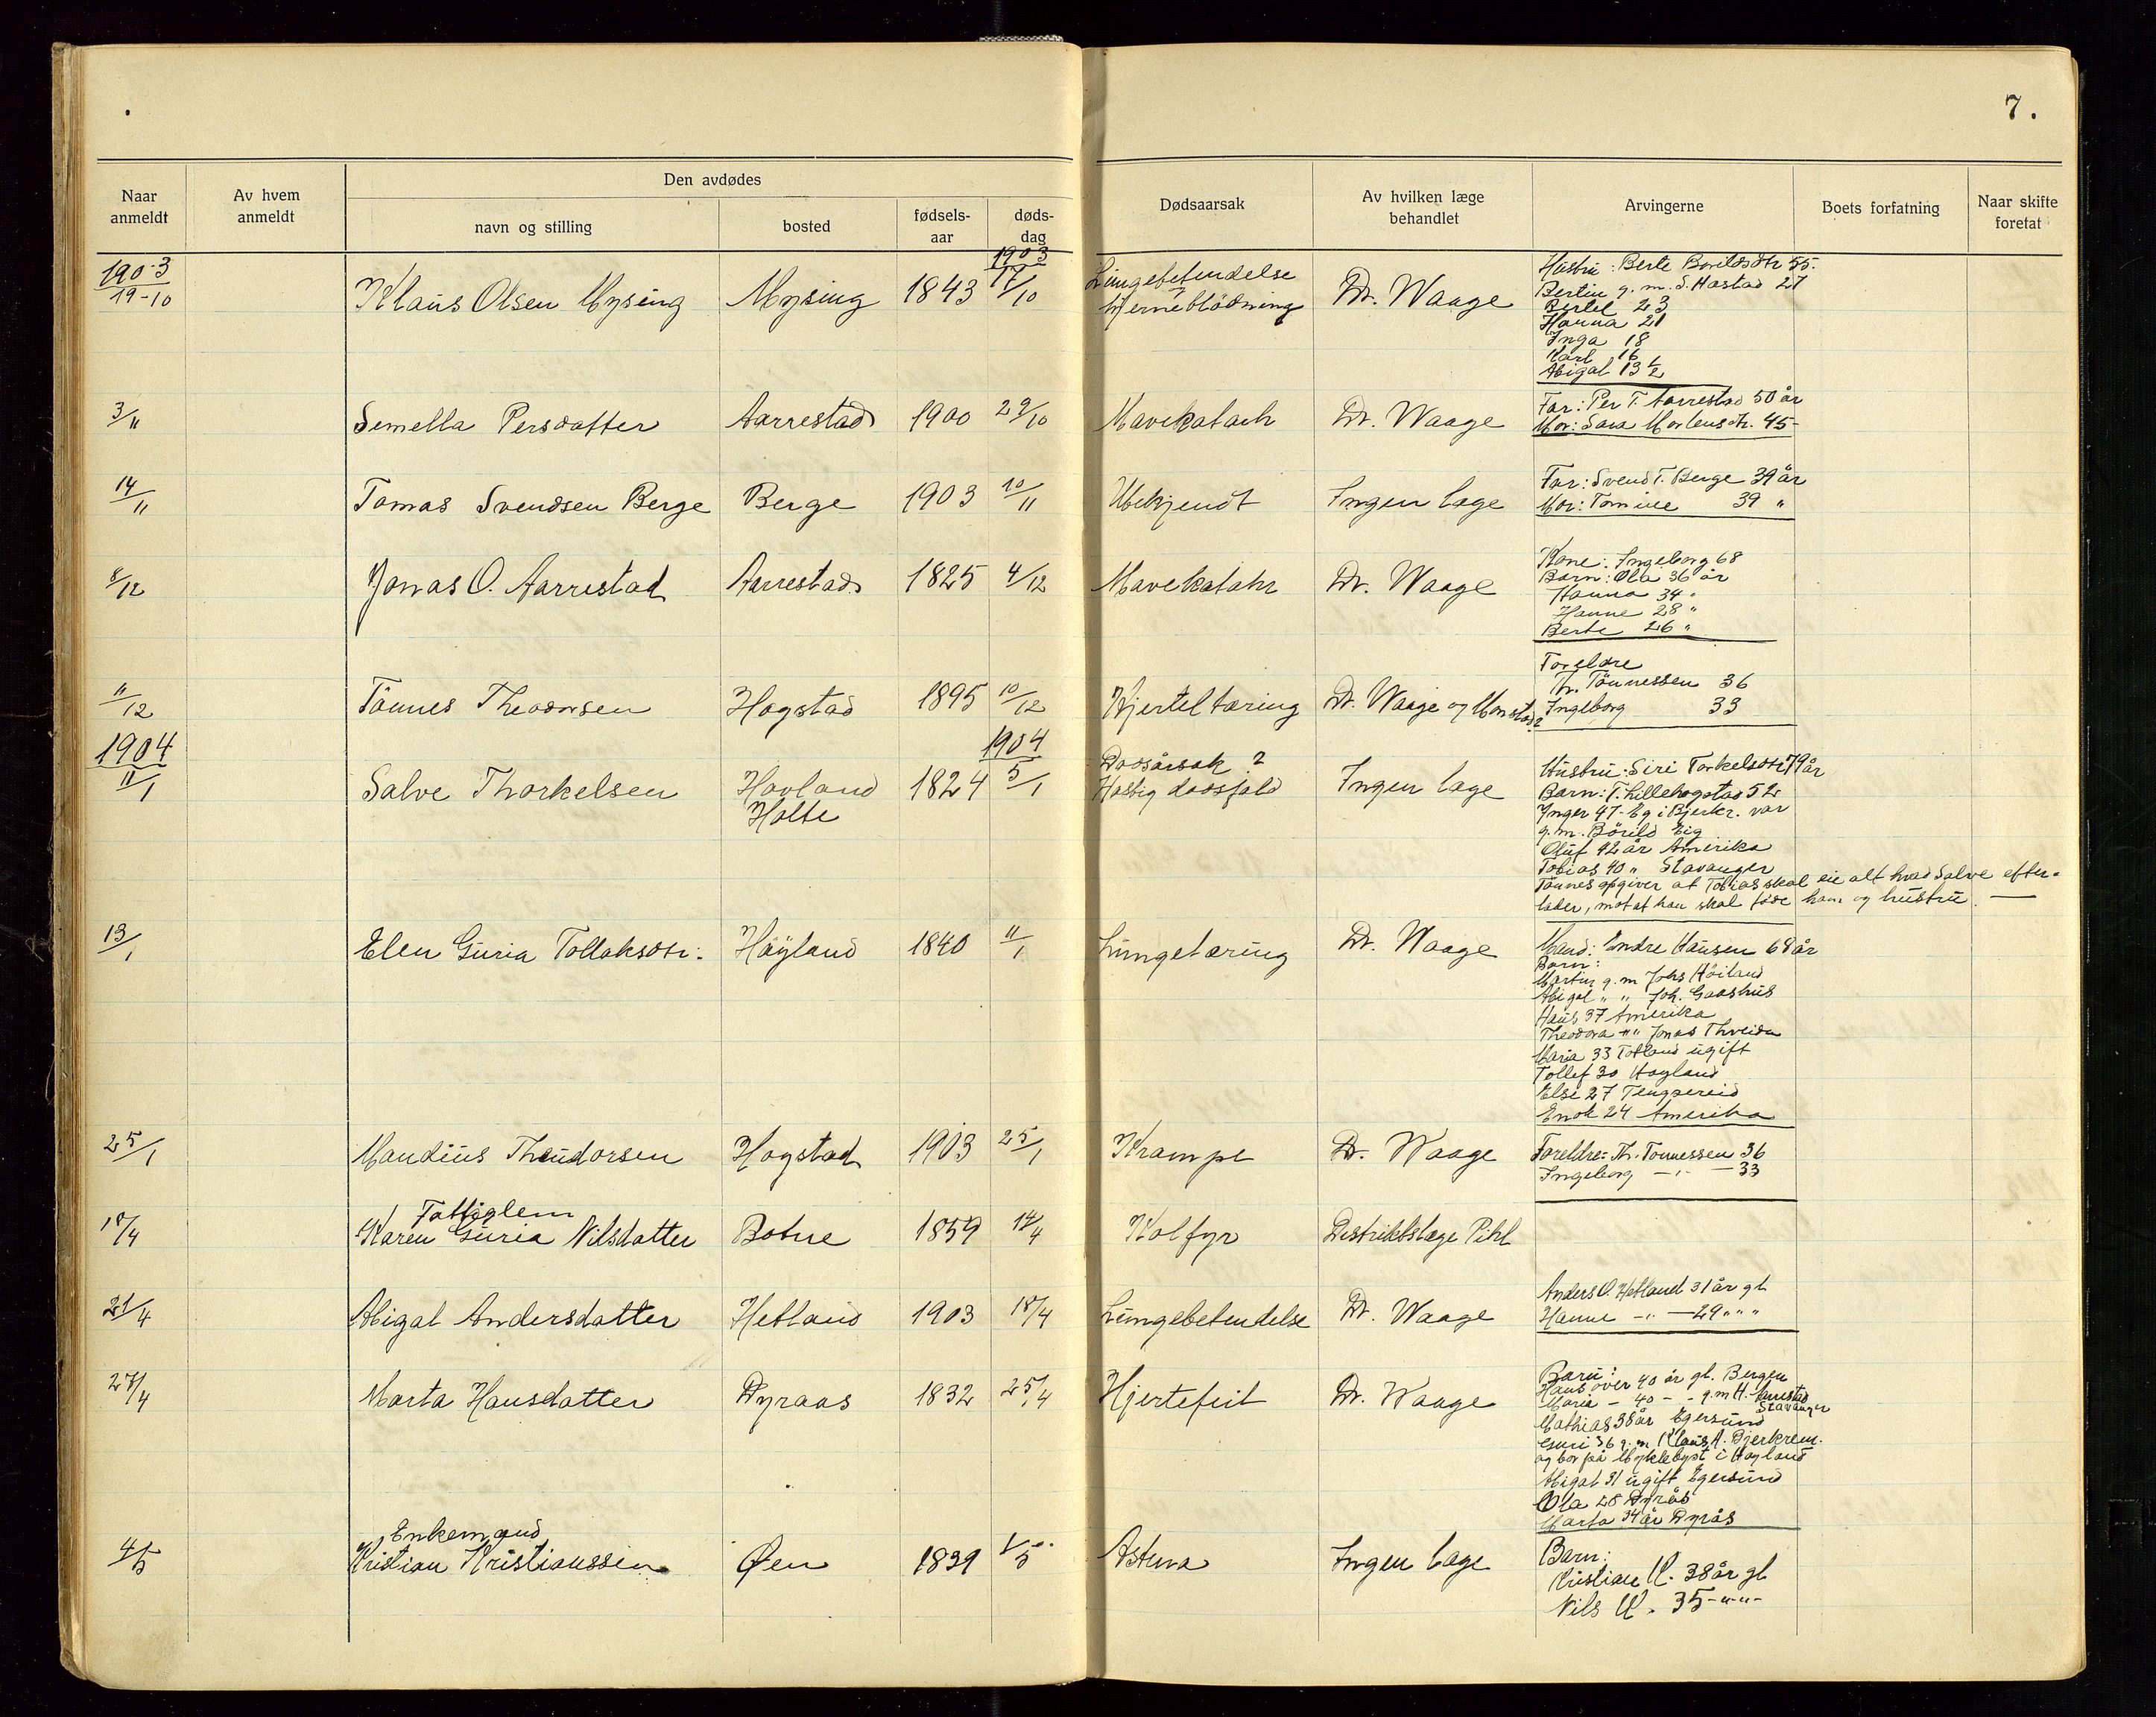 7.
Naar anmeldt
Av hvem anmeldt
Den avdødes
navn og stilling
bosted
fødsels-aar
døds-dag
Dødsaarsak
Av hvilken læge behandlet
Arvingerne
Boets forfatning
Naar skifte foretat
1903 19-10 Klaus Olsen Mysing Mysing 1843 1903 17/10 Lungebetendelse Dr. Waage
Hjerneblödning
Hustru: Berte Borildsdtr 55.
Bertin g.m. S. Hastad 27
Bertel 23
Hanna 21
Inga 18
Karl 16
Abigal 13 1/2
3/11 Semella Persdatter Aarrestad 1900 29/10 Mavekatarh Dr. Waage
Far: Per T. Aarrestad 50 år
Mor: Sara Mortensdtr. 45-
14/11 Tomas Svendsen Berge Berge 1903 10/11 Ubekjendt Ingen læge
Far: Svend T. Berge 39 år
Mor: Tomine 39 "
8/12 Jonas O. Aarrestad Aarrestad 1825 4/12 Mavekatahr Dr. Waage
Kone: Ingeborg 68
Barn: Ola 36 år
Hanna 34 "
Hanne 28 "
Berte 26 "
11/12 Tönnes Theodorsen Hogstad 1895 10/12 Kjerteltæring Dr. Waage og
Foreldre
Th. Tönnessen 36
Ingeborg 33
1904 11/1 Salve Thorkelsen Hovland 1824 1904 5/1 Dødsårsak ? Ingen læge
Holte
Hastig dødsfald
Hustru: Siri Torkelsdtr 79 år
Barn: T. Lillehogstad 52
Inger 47 - Eg i Bjerkr. var
g.m. Börild Eig
Oluf 42 år Amerika
Tobias 40 " Stavanger
Tönnes opgiver at Tobias skal eie alt hvad Salve efter-
lader, mot at han skal føde ham og hustru. —
13/1 Elen Guria Tollaksdtr: Höyland 1840 11/1 Lungetæring Dr. Waage
Mand: Endre Hansen 68 år
Barn:
Martin g.m Johs Höiland
Abigal " " Joh. Gaashus
Hans 37 Amerika
Theodora " " Jonas Thveiden
Maria 33 Totland ugift
Tollef 30 Høyland
Else 27 Tengsereid
Enok 24 Amerika
25/1 Mandius Theodorsen Hogstad 1903 25/1 Krampe Dr. Waage
Foreldre: Th. Tönnessen 36
Ingeborg —"— 33
18/4 Fattiglem
Karen Guria Nilsdatter Botne 1859 14/4 Kolfyr Distriktslæge Pihl
21/4 Abigal Andersdatter Hetland 1903 18/4 Lungebetendelse Dr. Waage
Anders O. Hetland 31 år gl
Hanne —"— 29 " " "
27/4 Marta Hansdatter Dyraas 1832 25/4 Hjertefeil Dr. Waage
Barn:
Hans over 40 år gl. Bergen
Maria - 40 - - g.m H. Aarrestad
Stavanger
Mathias 38 år Egersund
Guri 36 g.m. Klaus A. Bjerkreim.
og bor på Myklebyst i Høyland
Abigal 31 ugift Egersund
Ola 28 Dyrås
Marta 34 år Dyrås
4/5 Enkemand
Kristian Kristianssen Øen 1839 1/5 Astma Ingen læge
Barn:
Kristian K. 38 år gl
Nils K. 35 -"-"-